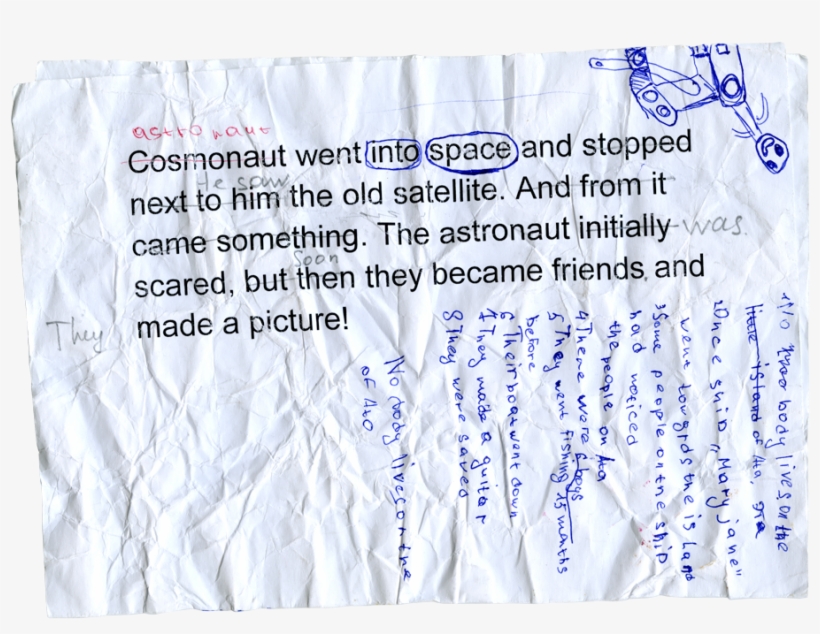 astronaut
Cosmonaut went into space and stopped
He saw
next to him the old satellite. And from it
came something. The astronaut initially was
Soon
scared, but then they became friends, and
They made a picture!
1) No body lives on the
island of Ata,
2) Once ship "Mary jane"
went towards the island
3) Some people on the ship
had noticed
the people on Ata
4) There were 6 boys
5) They went fishing 15 months
before
6 Their boat went down
7 They made a guitar
8 They were saved
No body lives on the
of Ata